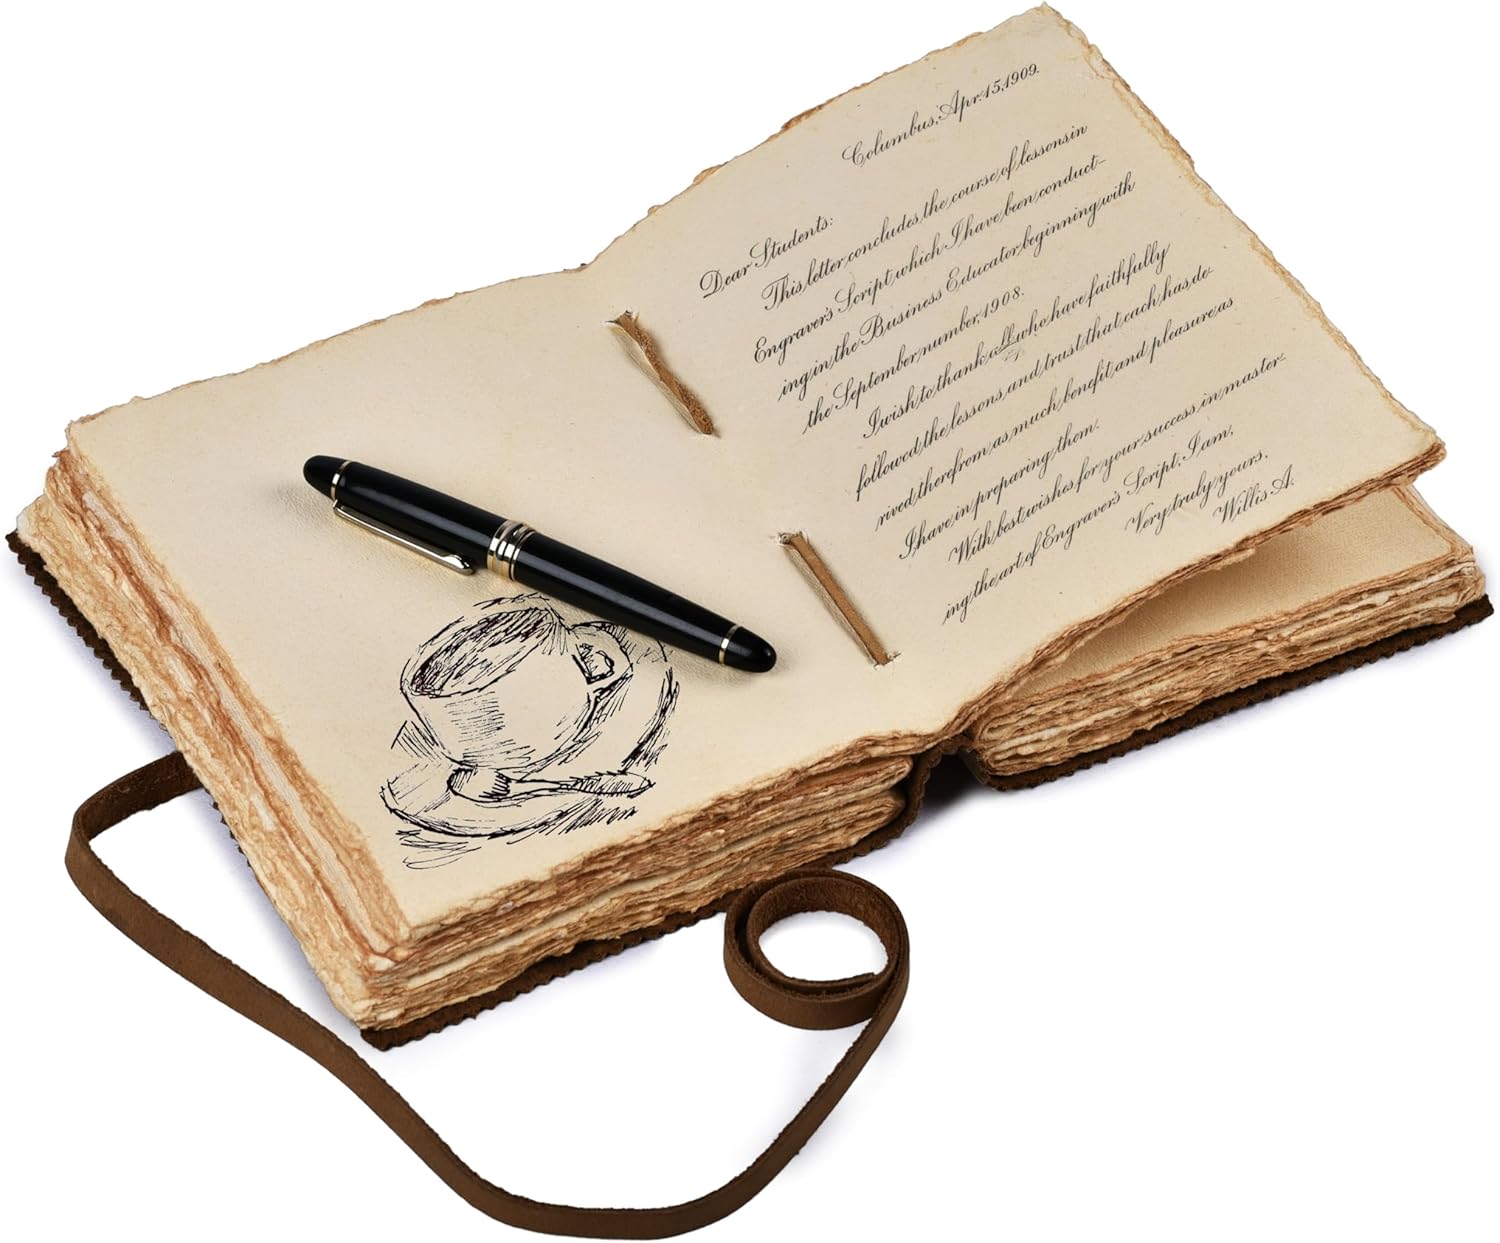 Columbus, Apr. 15, 1909.
Dear Students:
This letter concludes the course of lessons in
Engraver's Script which I have been conduct-
ing in the Business Educator beginning with
the September number, 1908.
I wish to thank all who have faithfully
followed the lessons and trust that each has de-
rived therefrom as much benefit and pleasure as
I have in preparing them.
With best wishes for your success in master-
ing the art of Engraver's Script, I am,
Very truly yours,
Willis A.